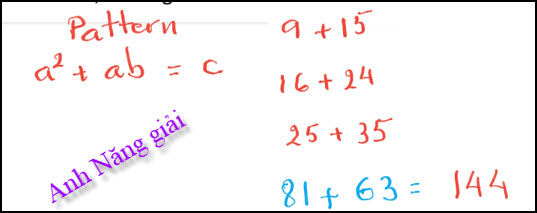 Pattern
a² + ab = c
Anh Năng giải
9 + 15
16 + 24
25 + 35
81 + 63 = 144